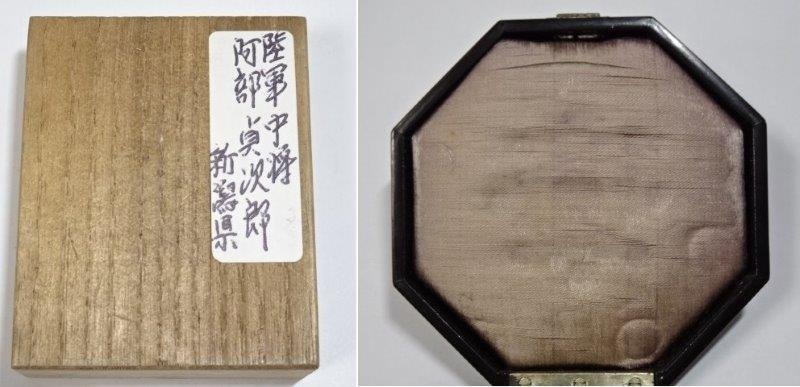 陸軍中將
阿部貞次郎
新潟県